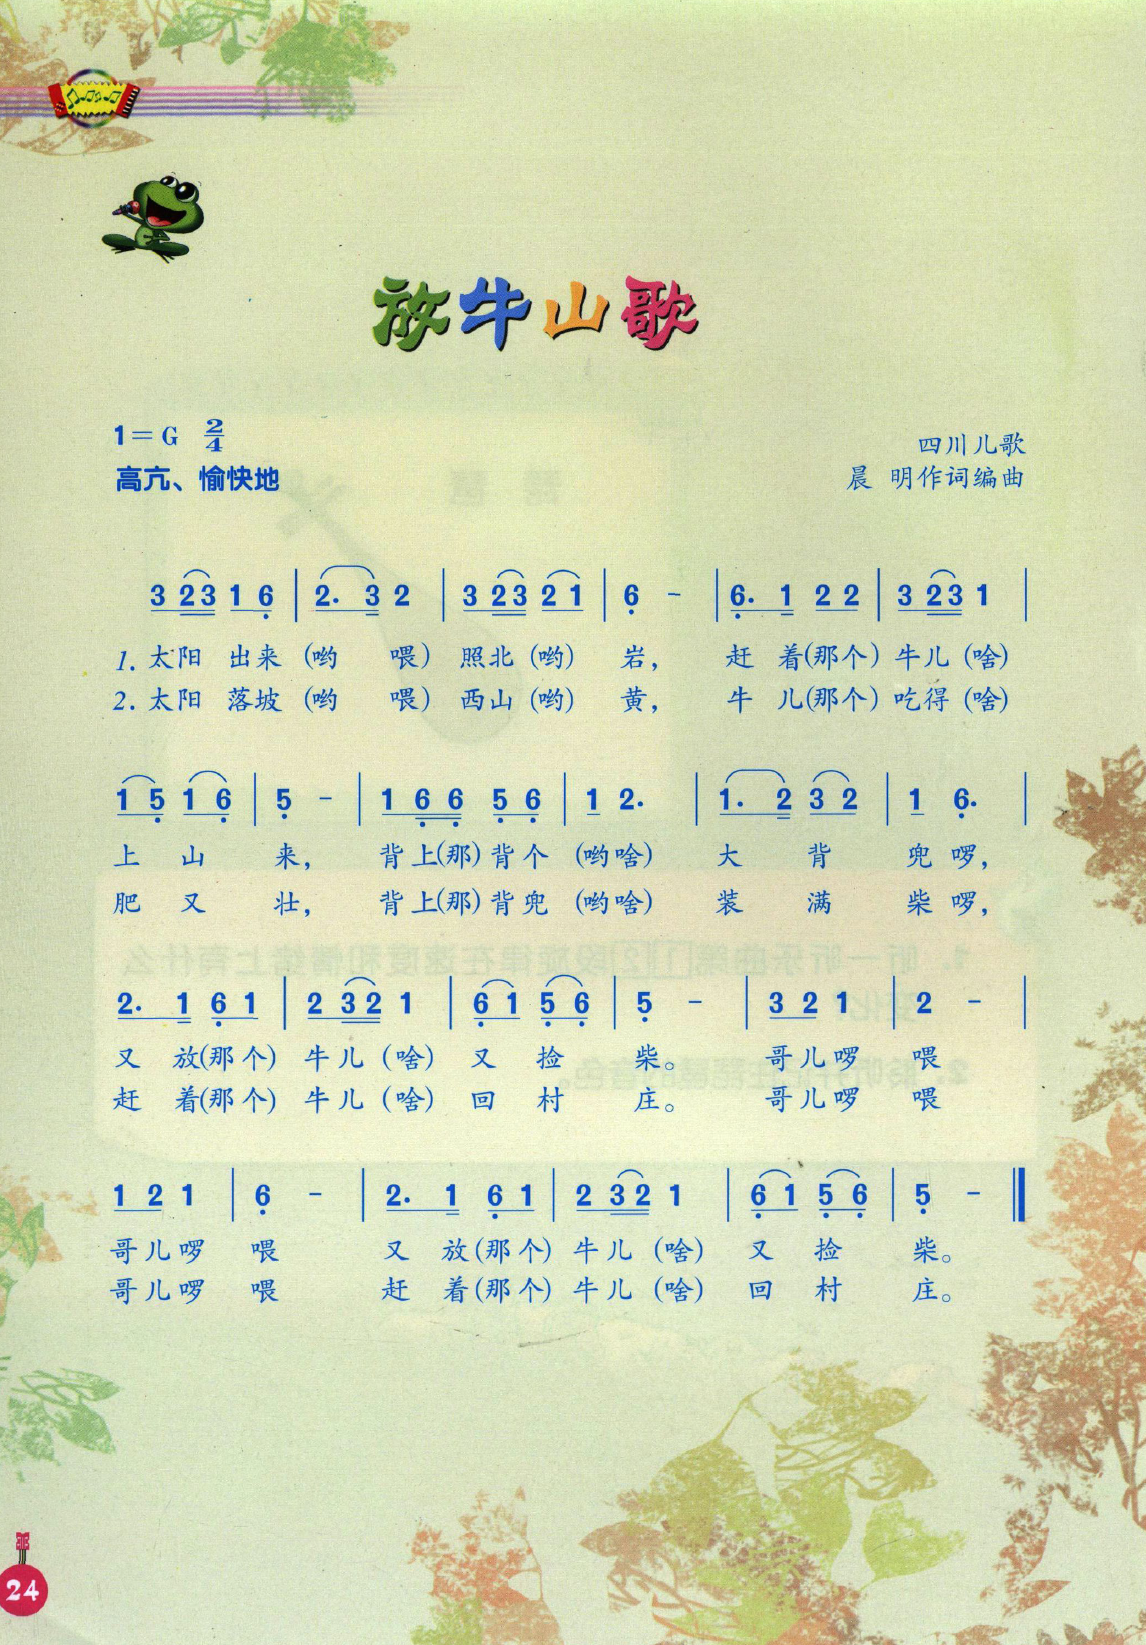 放牛山歌
1=G 2/4
四川儿歌
高亢、愉快地
晨 明作词编曲
3 23 1 6 | 2. 3 2 | 3 23 2 1 | 6 - | 6. 1 2 2 | 3 23 1 |
1. 太阳 出来 (哟 喂) 照北 (哟) 岩, 赶 着(那个) 牛儿 (啥)
2. 太阳 落坡 (哟 喂) 西山 (哟) 黄, 牛 儿(那个) 吃得 (啥)
1 5 1 6 | 5 - | 1 6 6 5 6 | 1 2. | 1. 2 3 2 | 1 6. |
上 山 来, 背上(那)背个 (哟啥) 大 背 兜 啰,
肥 又 壮, 背上(那)背兜 (哟啥) 装 满 柴 啰,
2. 1 6 1 | 2 32 1 | 6 1 5 6 | 5 - | 3 2 1 | 2 - |
又 放(那个) 牛儿 (啥) 又 捡 柴。 哥儿啰 喂
赶 着(那个) 牛儿 (啥) 回 村 庄。 哥儿啰 喂
1 2 1 | 6 - | 2. 1 6 1 | 2 32 1 | 6 1 5 6 | 5 - ‖
哥儿啰 喂 又 放(那个) 牛儿 (啥) 又 捡 柴。
哥儿啰 喂 赶 着(那个) 牛儿 (啥) 回 村 庄。
24